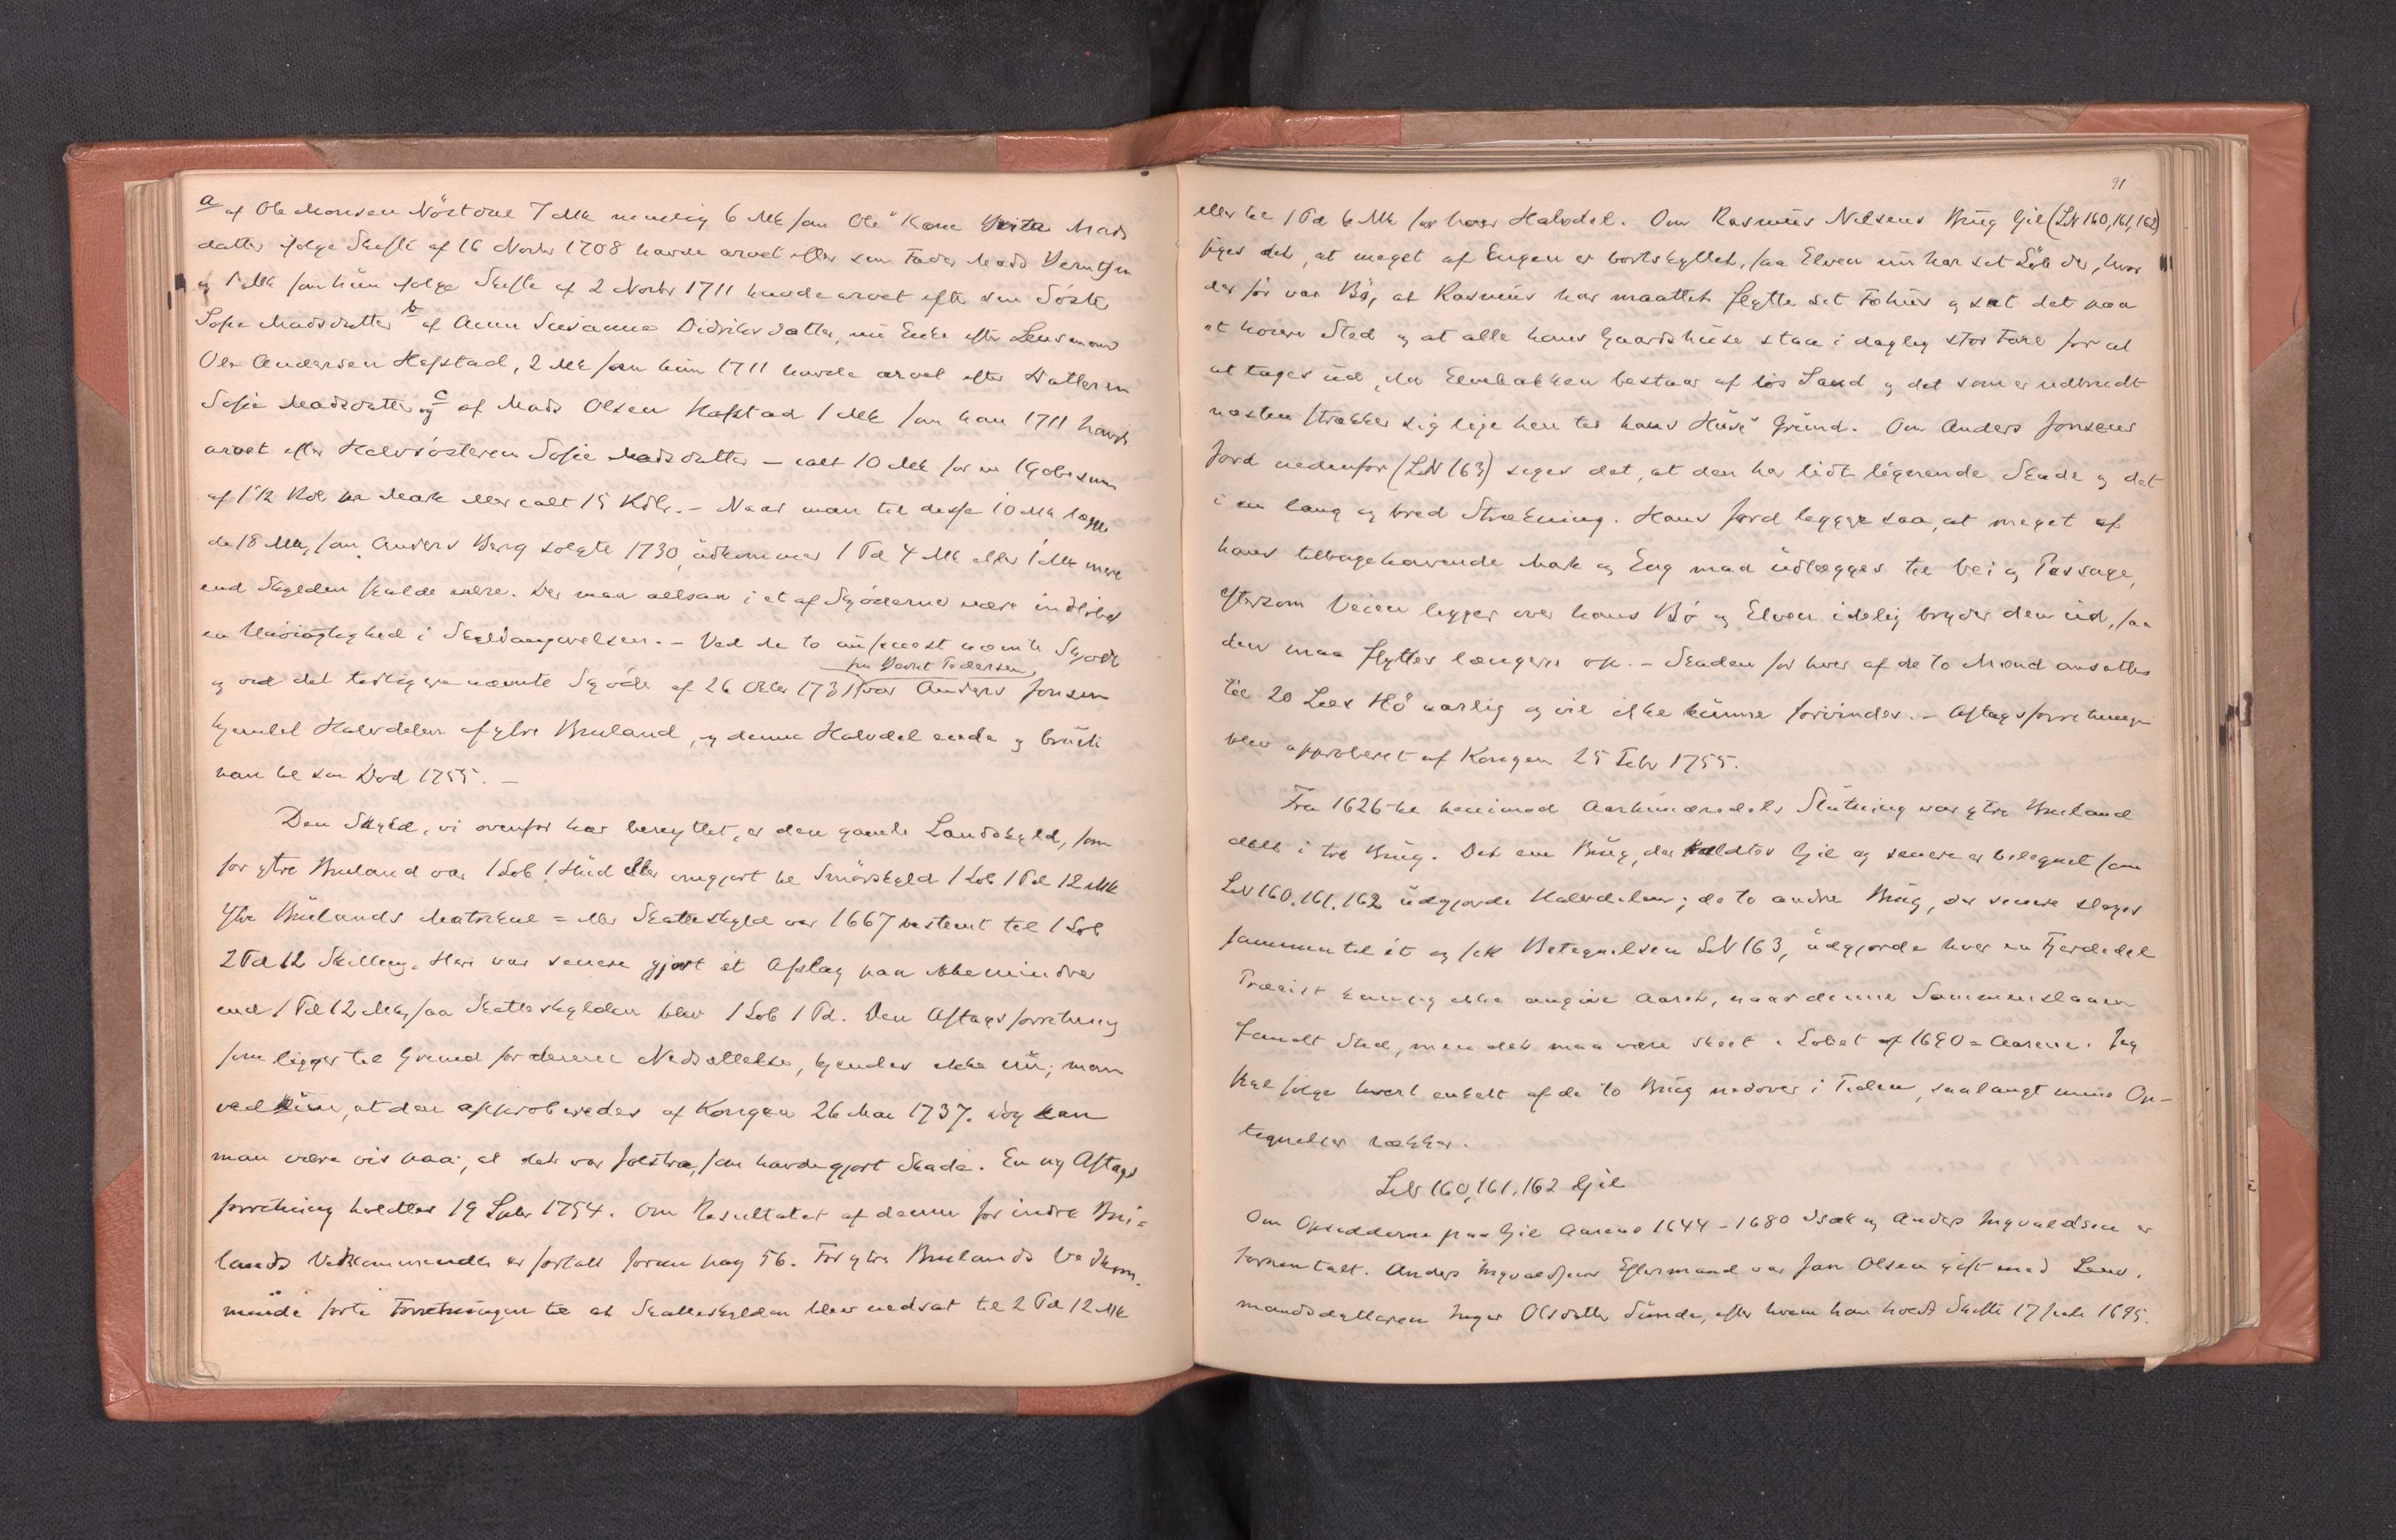 a af Ole Monsen Nörstdal 7 Mk nemlig 6 Mk som Ole's Kone Gritte Mads
datter ifølge Skifte af 16 Novbr 1708 havde arvet efter sin Fader Mads Berntsen
og 1 Mk som hun ifølge Skifte af 2 Novbr 1711 havde arvet efter sin Söster
Sofie Madsdatter b af Anne Susanna Didriksdatter, nu Enke efter Lensmand
Ole Andersen Hafstad, 2 Mk som hun 1711 havde arvet efter Datteren
Sofie Madsdatter og c af Mads Olsen Hafstad 1 Mk som han 1711 havde
arvet efter Halvsösteren Sofie Madsdatter – ialt 10 Mk for en Kjøbesum
af 1½ Rdr pr Mark eller ialt 15 Rdlr. – Naar man til disse 10 Mk lægger
de 18 Mk, som Anders Berg solgte 1730, udkommer 1 Pd 4 Mk eller 1 Mk mere
end Skylden skulde være. Der maa altsaa i et af Skjöderne være indløbet
en Unöiagtighed i Skyldangivelsen. – Ved de to nu senest nævnte Skjöde
fra Daniel Pedersen,
og ved det tidligere nævnte Skjöde af 26 Oktbr 1731 var Anders Jonsen
kjendel Halvdelen af ytre Bruland, og denne Halvdel eiede og brugte
han til sin Död 1755. –
Den Skyld, vi ovenfor har benyttet, er den gamle Landskyld, som
for ytre Bruland var 1 Löb 1 Hud eller omgjort til Smörskyld 1 Löb 1 Pd 12 Mk
Ytre Brulands Matrikul = eller Skatteskyld var 1667 bestemt til 1 Löb
2 Pd 12 Skilling. Heri var senere gjort et Aftag paa ikke mindre
end 1 Pd 12 Mk, saa Skatteskylden blev 1 Löb 1 Pd. Den Aftagsforretning
som ligger til Grund for denne Nedsættelse, kjendes ikke nu; man
ved kun, at den approberedes af Kongen 26 Mai 1737. Dog kan
man være vis paa, at det var Jolstra, som havde gjort Skade. En ny Aftags
forretning holdtes 19 Spbr 1754. Om Resultatet af denne for indre Bru=
lands Vedkommende er fortalt foran pag 56. For ytre Brulands Vedkom-
mende förte Forretningen til at Skatteskylden blev nedsat til 2 Pd 12 Mk
91
eller til 1 Pd 6 Mk for hver Halvdel. Om Rasmus Nilsens Brug Gil (LN 160, 161, 162)
siges det, at meget af Engen er bortskyllet, saa Elven nu har sit Löb der, hvor
der för var Bö, at Rasmus har maattet flytte sit Fohus og sat det paa
et höiere Sted og at alle hans Gaardshuse staa i daglig stor Fare for at
at tages ud, da Elvebakken bestaar af lös Sand og det som er udbrudt
næsten strækker sig lige hen til hans Huse's Grund. Om Anders Jonsens
Jord nedenfor (LN 163) siges det, at den har lidt lignende Skade og det
i en lang og bred Strækning. Hans Jord ligger saa, at meget af
hans tilbageværende Mark og Eng maa udlægges til Vei og Passage,
eftersom Veien ligger over hans Bö og Elven idelig bryder den ud, saa
den maa flyttes længere op. – Skaden for hver af de to Mænd ansattes
til 20 Læs Hö aarlig og vil ikke kunne forvindes. – Aftagsforretningen
blev approberet af Kongen 25 Feb 1755.
Fra 1626 til henimod Aarhundredets Slutning var ytre Bruland
delt i tre Brug. Det ene Brug, der kaldtes Gil og senere er betegnet som
LN 160, 161, 162 udgjorde Halvdelen; de to andre Brug, der senere sloges
sammen til ét og fik Betegnelsen LN 163, udgjorde hver en Fjerdedel
Præcist kan jeg ikke angive Aaret, naar denne Sammenslaaen
fandt Sted, men det maa være skeet i Löbet af 1690=Aarene. Jeg
skal følge hvert enkelt af de to Brug nedover i Tiden, saalangt mine Op-
tegnelser rækker.
LN 160, 161, 162 Gil
Om Opsidderne paa Gil Aarene 1644–1680 Isak og Anders Ingvaldsen er
foran talt. Anders Ingvaldsens Eftermand var Jan Olsen gift med Lens.
mandsdatteren Inger Olsdatter Sunde, efter hvem han holdt Skifte 17 Juli 1695.